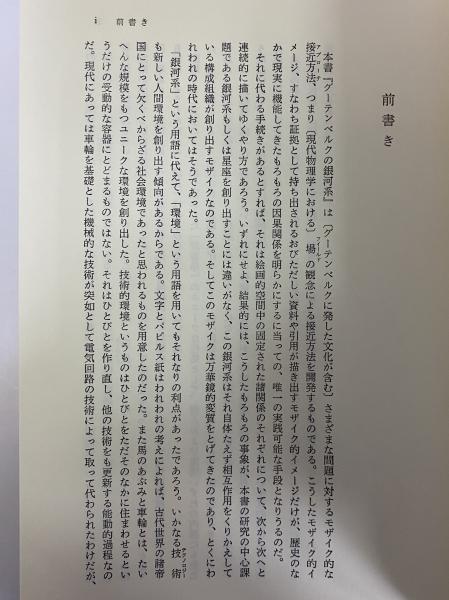 i 前書き
前書き
本書『グーテンベルクの銀河系』は〔グーテンベルクに発した文化が含む〕さまざまな問題に対するモザイク的な
接近方法、つまり〔現代物理学における〕場の観念による接近方法を開発するものである。こうしたモザイク的イ
メージ、すなわち証拠として持ち出されるおびただしい資料や引用が描き出すモザイク的イメージだけが、歴史のな
かで現実に機能してきたもろもろの因果関係を明らかにするに当っての、唯一の実践可能な手段となりうるのだ。
それに代わる手続きがあるとすれば、それは絵画的空間中の固定された諸関係のそれぞれについて、次から次へと
連続的に描いてゆくやり方であろう。いずれにせよ、結果的には、こうしたもろもろの事象が、本書の研究の中心課
題である銀河系もしくは星座を創り出すことには違いがなく、この銀河系はそれ自体たえず相互作用をくりかえして
いる構成組織が創り出すモザイクなのである。そしてこのモザイクは万華鏡的変質をとげてきたのであり、とくにわ
れわれの時代においてはそうであった。
「銀河系」という用語に代えて、「環境」という用語を用いてもそれなりの利点があったであろう。いかなる技術
も新しい人間環境を創り出す傾向があるからである。文字とパピルス紙はわれわれの考えによれば、古代世界の諸帝
国にとって欠くべからざる社会環境であったと思われるものを用意したのだった。また馬のあぶみと車輪とは、たい
へんな規模をもつユニークな環境を創り出した。技術的環境というものはひとびとをただそのなかに住まわせるとい
うだけの受動的な容器にとどまるものではない。それはひとびとを作り直し、他の技術をも更新する能動的過程なの
だ。現代にあっては車輪を基礎とした機械的な技術が突如として電気回路の技術によって取って代わられたわけだが、